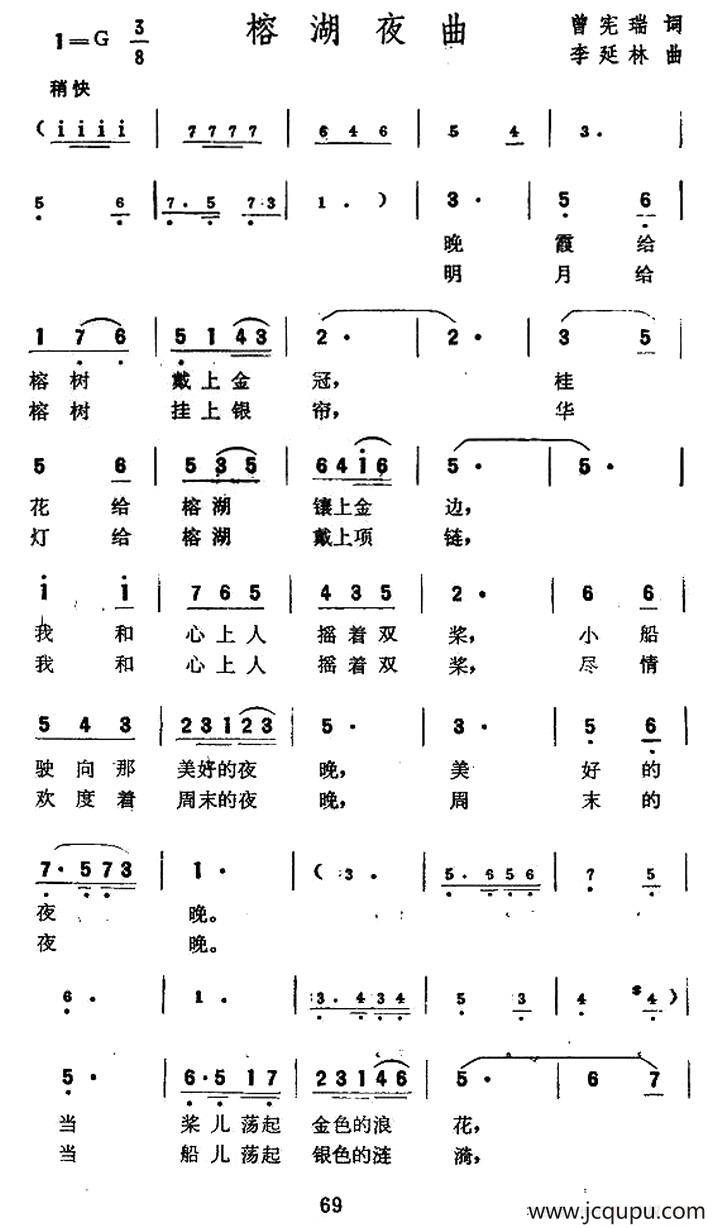 榕湖夜曲
1=G 3/8
曾宪瑞 词
李延林 曲
稍快
(i i i i | 7 7 7 7 | 6 4 6 | 5 4 | 3. |
5 6 | 7. 5 7 3 | 1. ) | 3. | 5 6 |
晚 霞 给
明 月 给
1 7 6 | 5 1 4 3 | 2. | 2. | 3 5 |
榕 树 戴 上 金 冠, 桂
榕 树 挂 上 银 帘, 华
5 6 | 5 3 5 | 6 4 i 6 | 5. | 5. |
花 给 榕 湖 镶上金 边,
灯 给 榕 湖 戴上项 链,
i i | 7 6 5 | 4 3 5 | 2. | 6 6 |
我 和 心 上 人 摇 着 双 桨, 小 船
我 和 心 上 人 摇 着 双 桨, 尽 情
5 4 3 | 2 3 1 2 3 | 5. | 3. | 5 6 |
驶 向 那 美好的夜 晚, 美 好 的
欢 度 着 周末的夜 晚, 周 末 的
7. 5 7 3 | 1. | ( 3. | 5. 6 5 6 | 7 5 |
夜 晚。
夜 晚。
6. | 1. | 3. 4 3 4 | 5 3 | 4 #4 ) |
5. | 6. 5 1 7 | 2 3 1 4 6 | 5. | 6 7 |
当 桨 儿 荡起 金色的浪 花,
当 船 儿 荡起 银色的涟 漪,
69
www.jcqupu.com